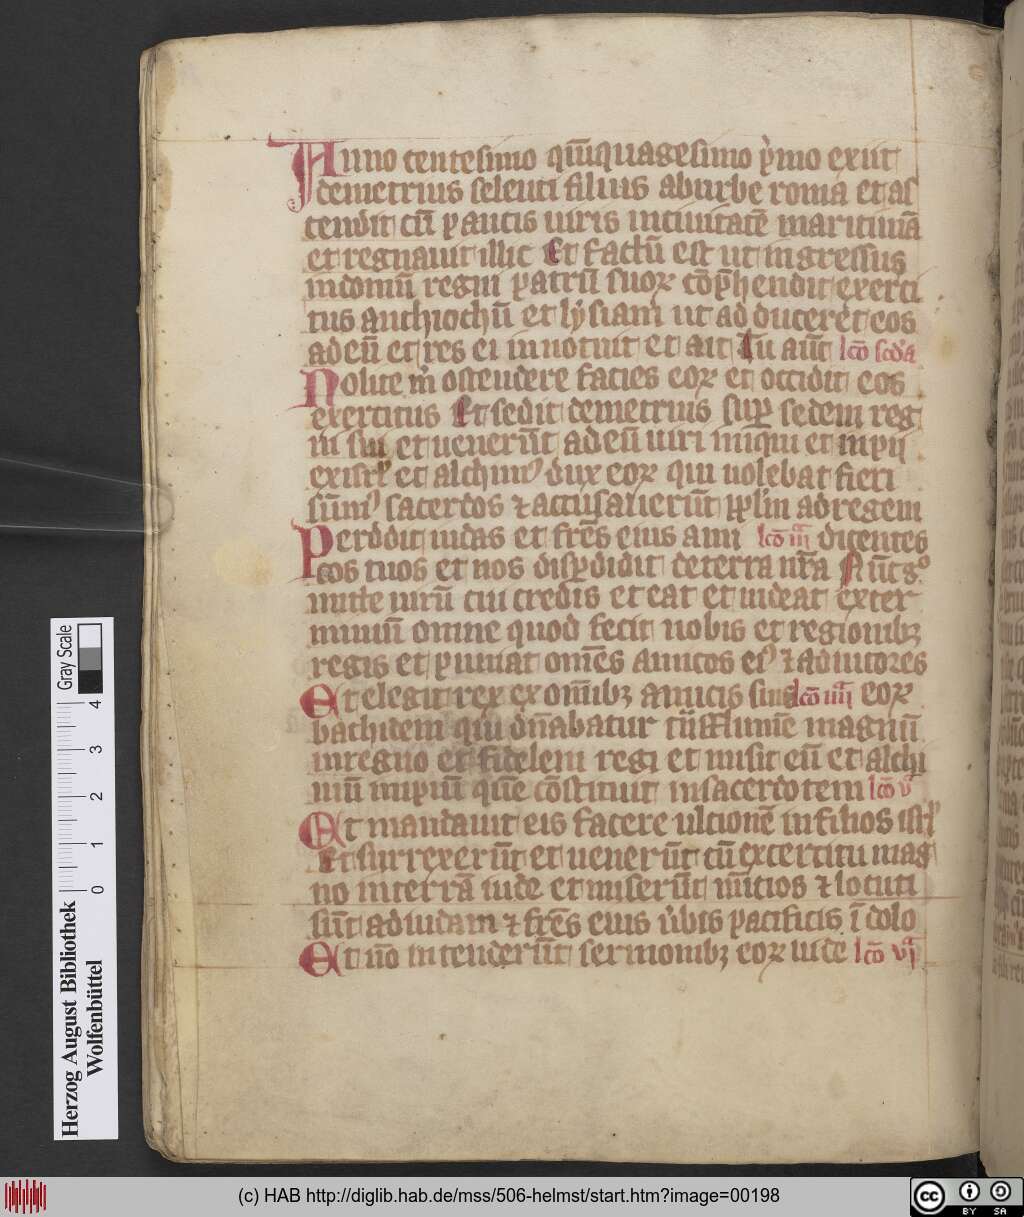 Anno centesimo quīquagesimo p̓mo exiit
demetrius seleuci filius ab urbe roma et as
cendit cū paucis uiris in ciuitatē maritimā
et regnauit illic Et factū est ut ingressus
in domū regni patrū suoꝝ cōp̄hendit exerci
tus anthiochū et lysiam ut adducerēt eos
ad eū et res ei innotuit et ait Tu aūt lcō scd̓a
Nolite m̄ ostendere facies eoꝝ et occidit eos
exercitus Et sedit demetrius suꝑ sedem reg
ni sui et uenerūt ad eū uiri iniqui et impij
ex isrl̓ et alchimꝰ dux eoꝝ qui uolebat fieri
sūmꝰ sacerdos ⁊ accusauerūt pplm̄ ad regem
Perdidit iudas et frēs eius ami lcō iii dicentes
cos tuos et nos disꝑdidit de terra nrā Nūc gͦ
mitte uirū cui credis et eat et uideat exter
miniū omne quod fecit nobis et regionibꝫ
regis et puniat omēs amicos eiꝰ ⁊ adiutores
Et elegit rex ex omībꝫ amicis suis lcō iiii eoꝝ
bachidem qui dn̄abatur trās flumē magnū
in regno et fidelem regi et misit eū et alchi
mū impiū quē cōstituit in sacerdotem lcō v
Et mandauit eis facere ulcionē in filios isrl̓
Et surrexerūt et uenerūt cū exercitu mag
no in terrā iude et miserūt nūcios ⁊ locuti
sūt ad iudam ⁊ frēs eius u̓bis pacificis ī dolo
Et nō intenderūt sermonibꝫ eoꝝ iude lcō vi
Gray Scale
4
3
2
1
0
Herzog August Bibliothek
Wolfenbüttel
(c) HAB http://diglib.hab.de/mss/506-helmst/start.htm?image=00198
cc BY SA